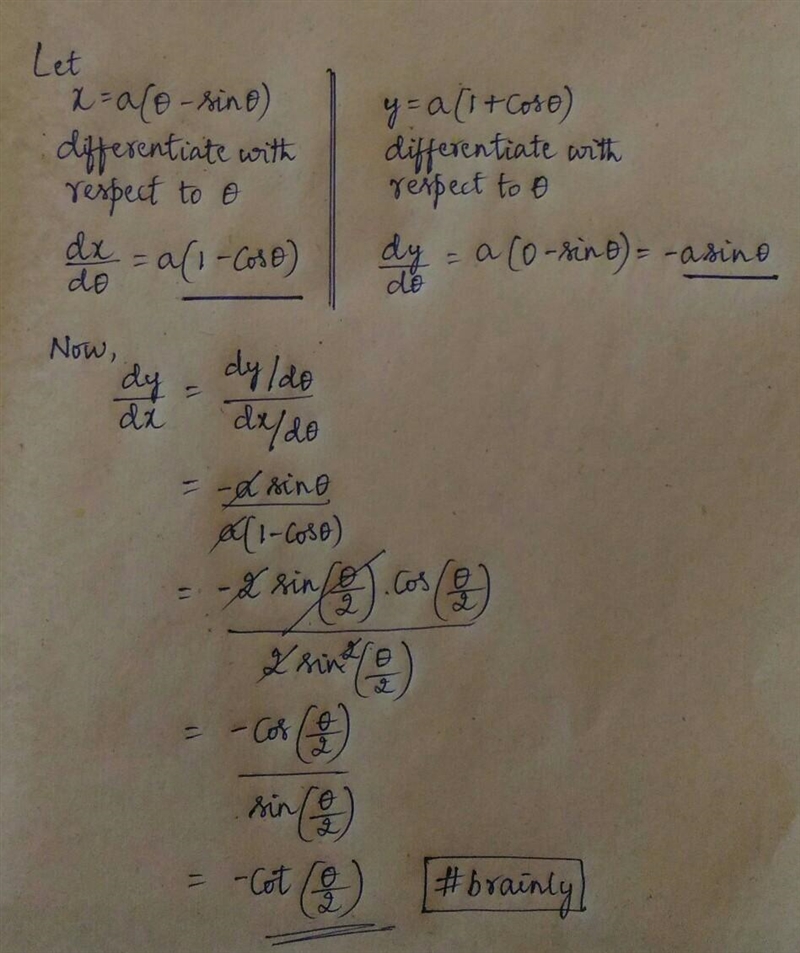 Let
x=a(θ-sinθ)
differentiate with
respect to θ
dx/dθ = a(1-Cosθ)
y=a(1+Cosθ)
differentiate with
respect to θ
dy/dθ = a(0-sinθ)= -asinθ
Now,
dy/dx = (dy/dθ)/(dx/dθ)
= -a sinθ / a(1-Cosθ)
= -2 sin(θ/2).Cos(θ/2) / 2 sin²(θ/2)
= -Cos(θ/2) / sin(θ/2)
= -Cot(θ/2)
#brainly